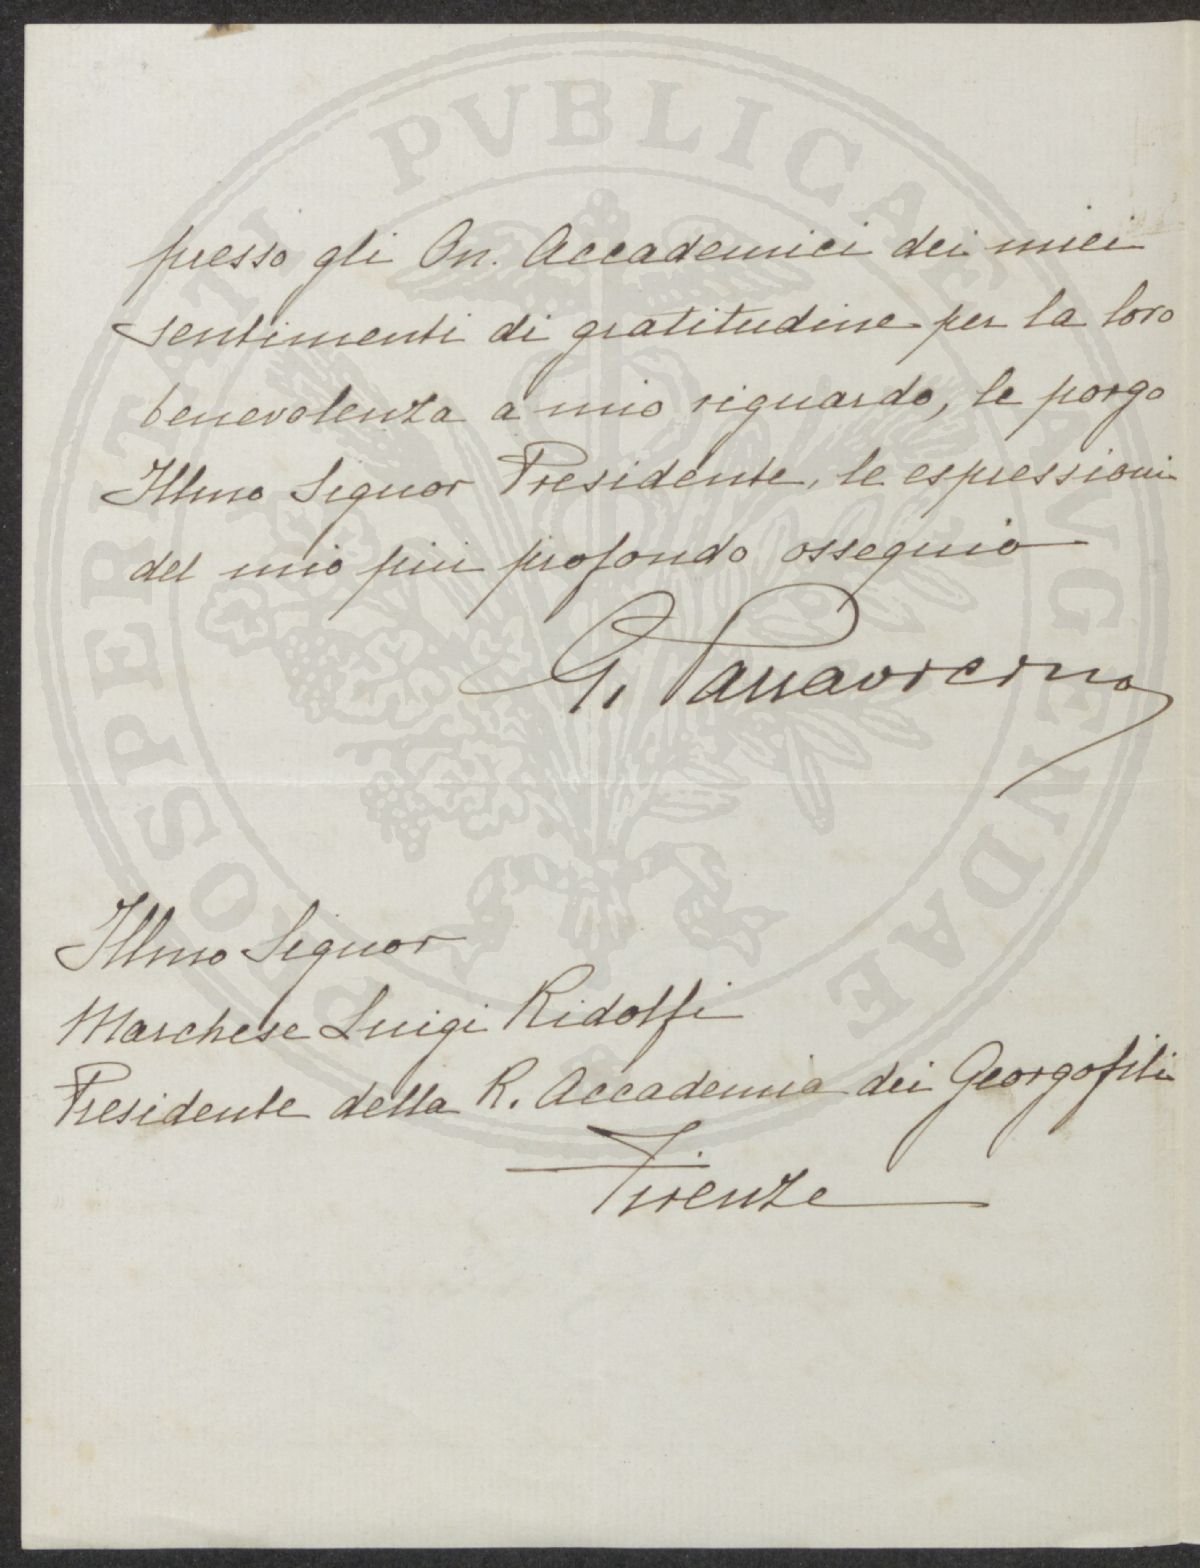 PROSPERITATI PVBLICAE AVGENDAE
presso gli On. Accademici dei miei
sentimenti di gratitudine per la loro
benevolenza a mio riguardo, le porgo
Illmo Signor Presidente, le espressioni
del mio più profondo ossequio
G.
Illmo Signor
Marchese Luigi Ridolfi
Presidente della R. Accademia dei Georgofili
Firenze